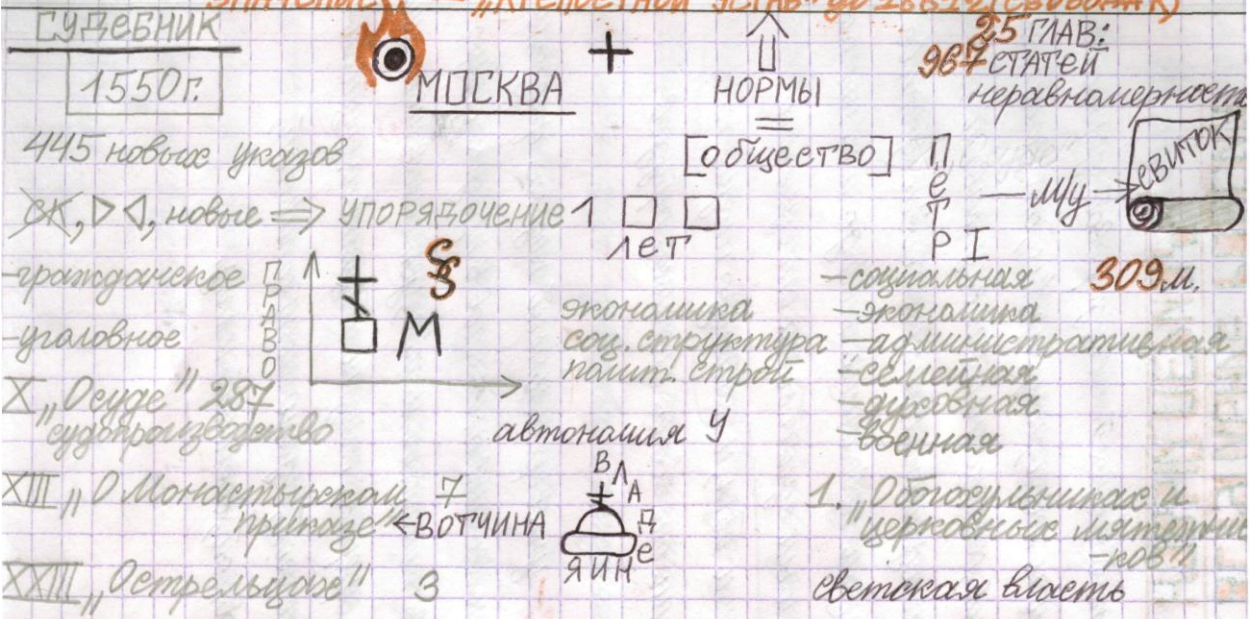 ЗНАЧЕНИЕ — „КРЕПОСТНОЙ УСТАВ" до
СУДЕБНИК
1550г.
МОСКВА
+
НОРМЫ
=
[общество]
25 ГЛАВ:
967 СТАТЕЙ
неравномерность
445 новых указов
СК, новые ⇒ УПОРЯДОЧЕНИЕ
1 □ □
лет
ПеТР I — м/у → СВИТОК
309 м.
-гражданское
-уголовное
ПРАВО
§
М
экономика
соц. структура
полит. строй
-социальная
-экономика
-административная
-семейная
-духовная
-военная
X „О суде" 287
судопроизводство
автономия У
XIII „О Монастырском 7
приказе" ←ВОТЧИНА
ВЛАДЕНИЯ
XXIII „О стрельцах" 3
1. „О богохульниках и
церковных мятежни
-ков"
светская власть